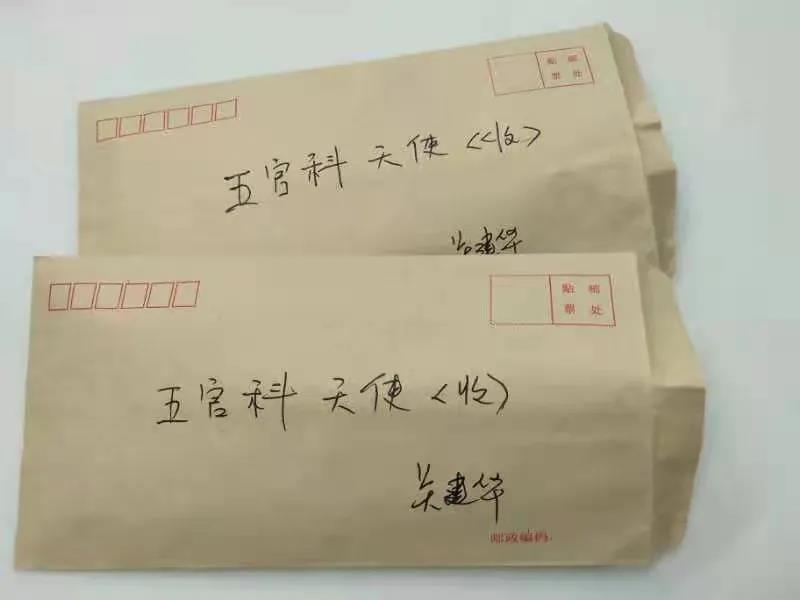 貼 郵
票 处
五官科 天使<<收>
吴建华
貼 郵
票 处
五官科 天使<收>
吴建华
邮政编码